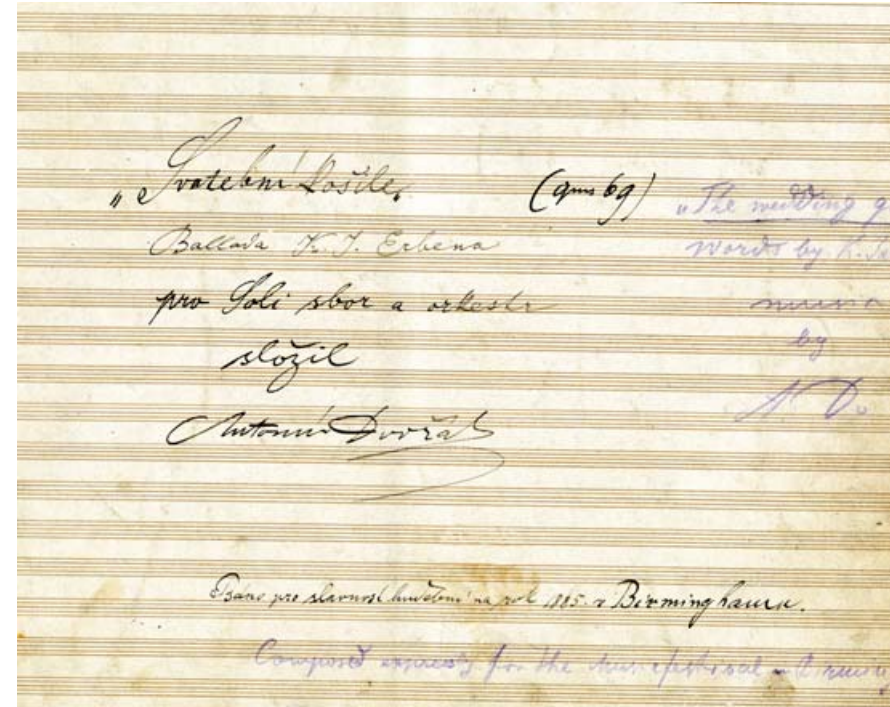 „Svatební košile„ (opus 69)
Ballada K. J. Erbena
pro Soli sbor a orkestr
složil
Antonín Dvořák
„The wedding g
words by K.
music
by
A Dv
Psáno pro slavnost hudební na rok 1885. v Birminghamu.
Composed expressly for the